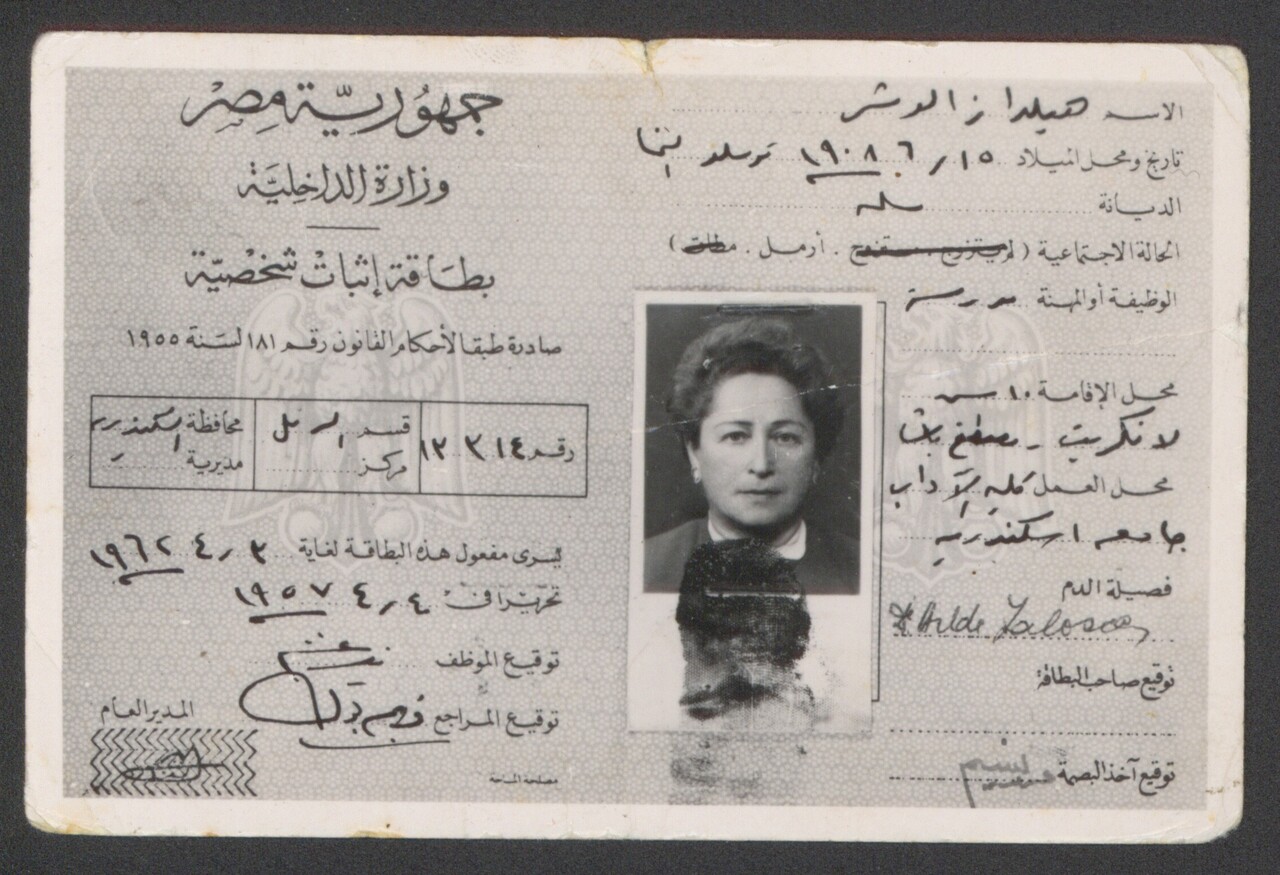 الاسم هيلدا زالوشر
تاريخ ومحل الميلاد ١٥/٦/١٩٠٨ النمسا
الديانة مسلمة
الحالة الاجتماعية ( لم يتزوج . متزوج . أرمل . مطلق )
الوظيفة أو المهنة مدرسة
محل الإقامة ١٠ ش
لانكريت - مصطفى باشا
محل العمل كلية الآداب
جامعة اسكندرية
فصيلة الدم
Hilde Zaloscer
توقيع صاحب البطاقة
توقيع آخذ البصمة
جمهورية مصر
وزارة الداخلية
بطاقة إثبات شخصية
صادرة طبقا لأحكام القانون رقم ١٨١ لسنة ١٩٥٥
رقم ١٣٣١٤ قسم الرمل محافظة اسكندرية
مركز مديرية
يسرى مفعول هذه البطاقة لغاية ٣/٤/١٩٦٢
تحريرا فى ٤/٤/١٩٥٧
توقيع الموظف
توقيع المراجع
المدير العام
مصلحة المساحة